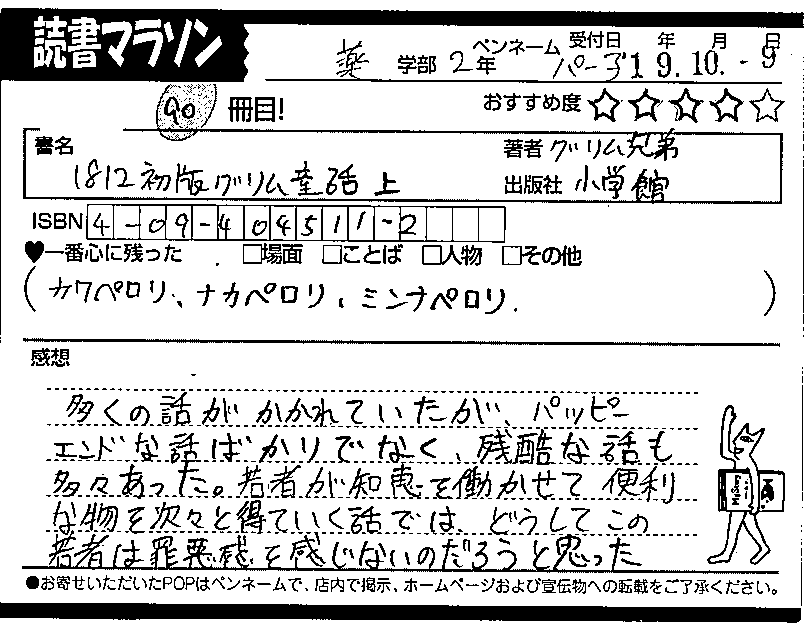 読書マラソン
薬 学部 2年 ペンネーム パーヲ 受付日 '19年 10.月 -9日
90 冊目! おすすめ度 ☆☆☆☆☆
書名 1812初版グリム童話 上
著者 グリム兄弟
出版社 小学館
ISBN 4-09-404511-2
♥一番心に残った □場面 □ことば □人物 □その他
(カワペロリ、ナカペロリ、ミンナペロリ.)
感想
多くの話がかかれていたが、パッピー
エンドな話ばかりでなく、残酷な話も
多々あった。若者が知恵を働かせて便利
な物を次々と得ていく話では、どうしてこの
若者は罪悪感を感じないのだろうと思った
●お寄せいただいたPOPはペンネームで、店内で掲示、ホームページおよび宣伝物への転載をご了承ください。